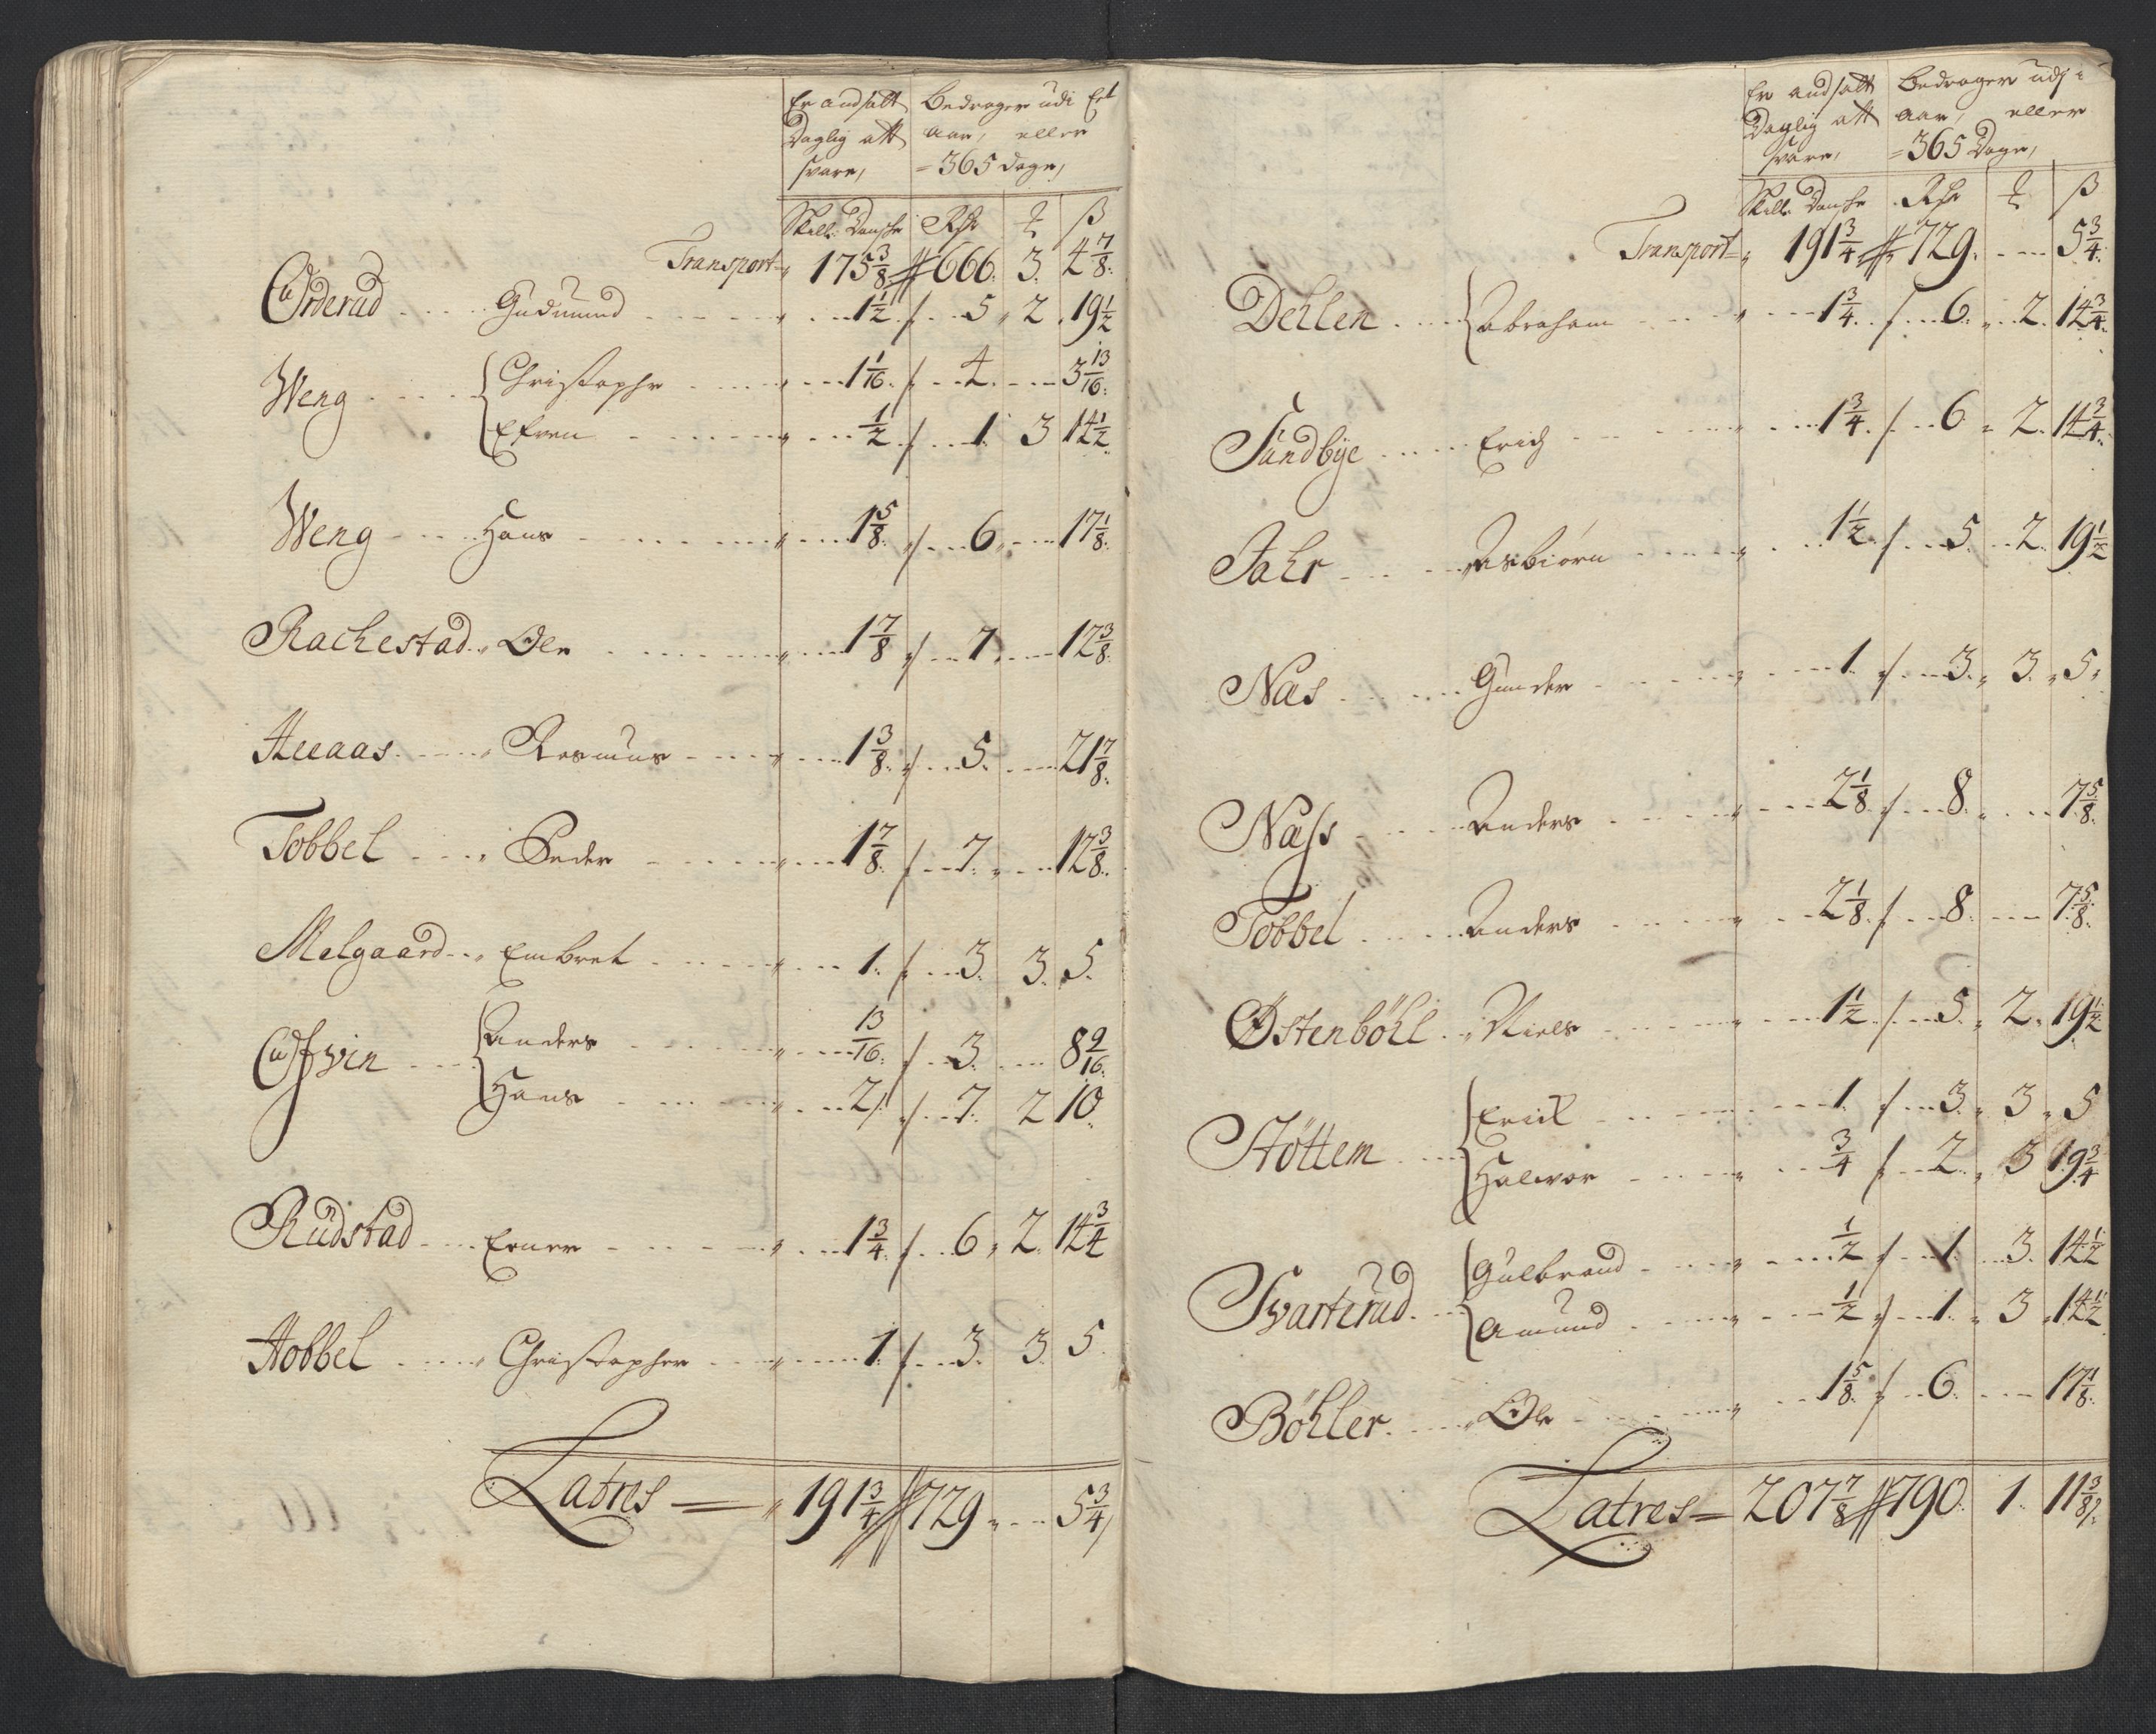 Er andsatt Bedrager udi Eet
Daglig att aar, eller
svare, = 365 dage,
Skill: Danske Rdr ₰ ß
Transport 175 3/8 666. 3. 4 7/8.
Orderud Gudmund 1 1/2 5 2 19 1/2
Weng Christopher 1 1/16 4 3 13/16
Efven 1/2 1 3 14 1/2
Weng Hans 1 5/8 6 17 1/8
Rachestad Ole 1 7/8 7 12 3/8
Aaas Rasmus 1 3/8 5 21 7/8
Tobbel Peder 1 7/8 7 12 3/8
Melgaard Embret 1 3 3 5
Anders 13/16 3 8 9/16
Hans 2 7 2 10
Rudstad Einer 1 3/4 6 2 14 3/4
Hobbel Christopher 1 3 3 5
Latres 191 3/4 729 5 3/4
Er andsatt Bedrager udj
Daglig att aar, eller
svare, = 365 Dage,
Skill: Danske Rdr ₰ ß
Transport 191 3/4 729. 5 3/4
Dehlen Abraham 1 3/4 6 2 14 3/4
Sundbye Erich 1 3/4 6 2 14 3/4
Jahr Asbiørn 1 1/2 5 2 19 1/2
Nas Gunder 1 3 3 5
Nass Anders 2 1/8 8 7 5/8
Tobbel Anders 2 1/8 8 7 5/8
Østenböhl Niels 1 1/2 5 2 19 1/2
Stöttem Erick 1 3 3 5
Halvor 3/4 2 3 19 3/4
Svarterud Gulbrand 1/2 1 3 14 1/2
Amund 1/2 1 3 14 1/2
Böhler Ole 1 5/8 6 17 1/8
Latres 207 7/8 790 1 11 3/8